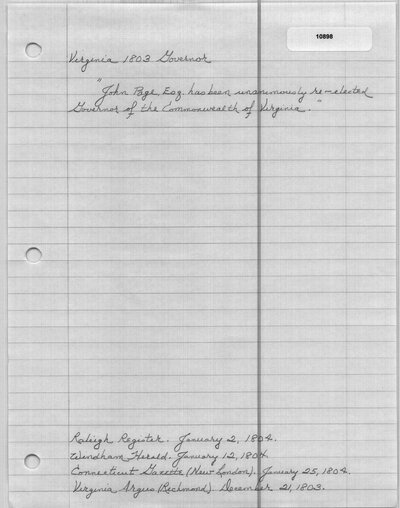 10898
Virginia 1803 Governor
"John Page, Esq. has been unanimously re-elected
Governor of the Commonwealth of Virginia."
Raleigh Register. January 2, 1804.
Windham Herald. January 12, 1804.
Connecticut Gazette (New London). January 25, 1804.
Virginia Argus (Richmond). December 21, 1803.